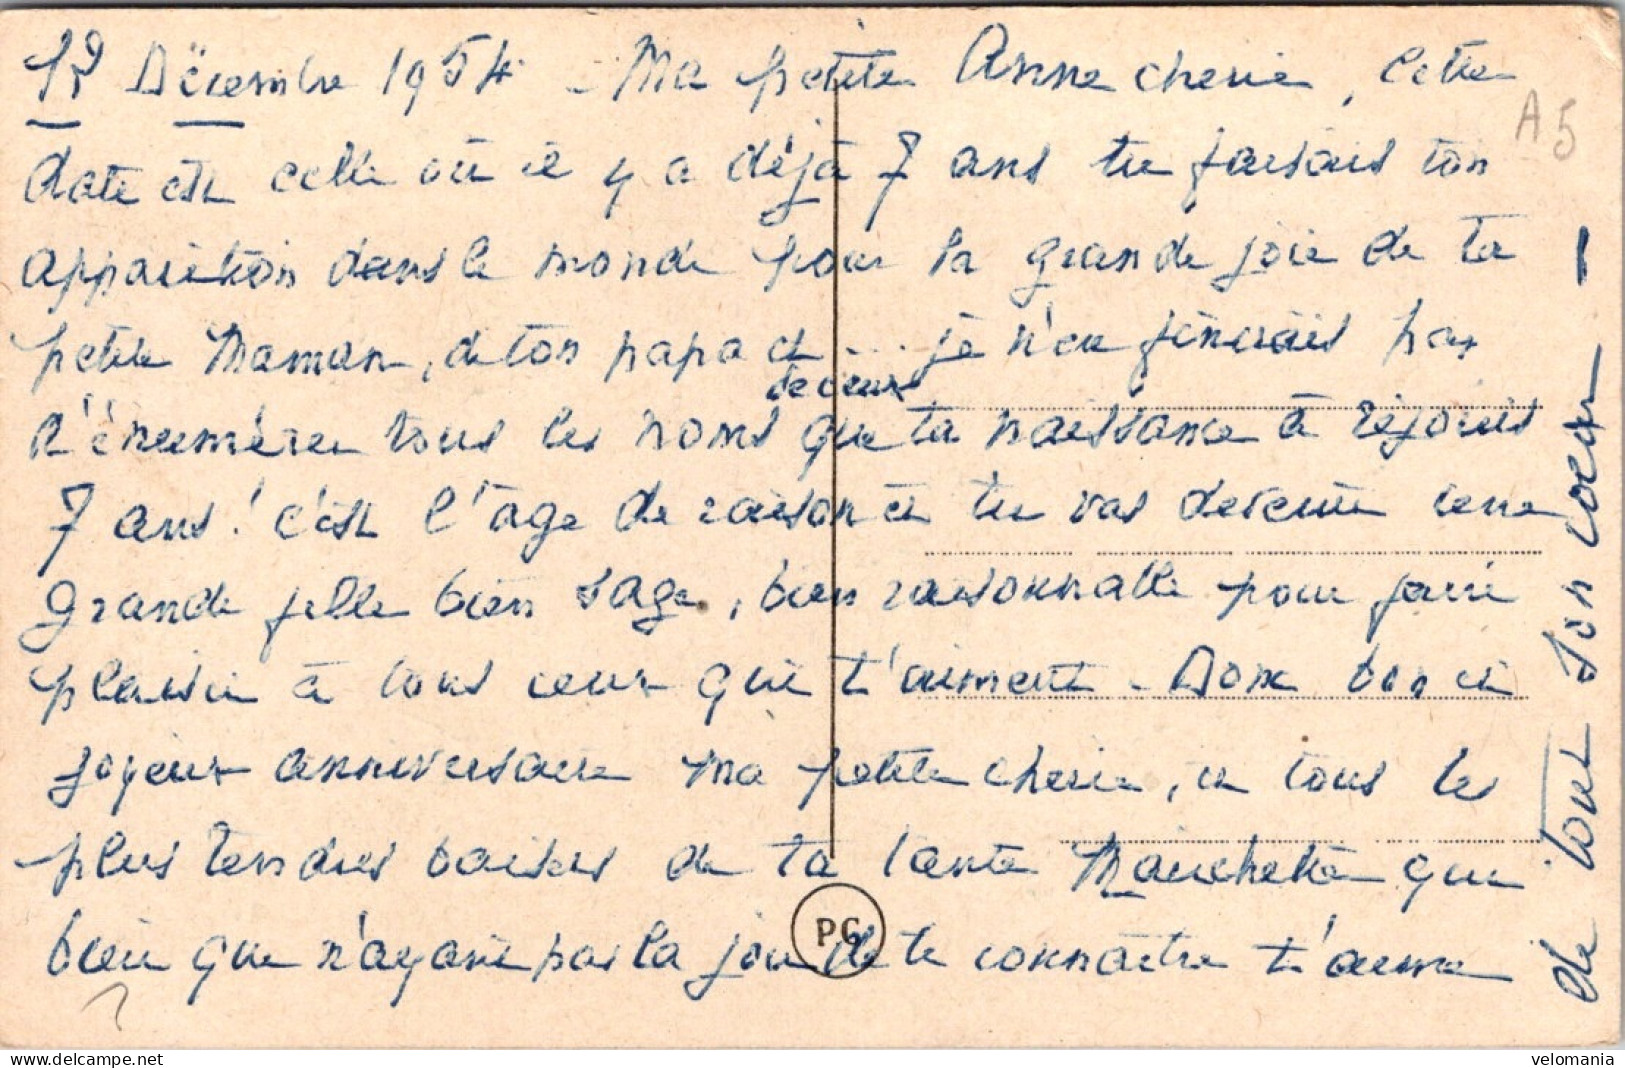 Décembre 1954 - Ma petite Anne cherie, cette
date est celle où il y a déjà 7 ans tu faisais ton
apparition dans le monde pour la grande joie de ta
petite Maman, de ton papa et ... je n'en finirais pas
de ceux
d'énumérer tous les noms que ta naissance à réjouis
7 ans! c'est l'âge de raison et tu vas devenir une
grande fille bien sage, bien raisonnable pour faire
plaisir à tous ceux qui t'aiment - Donc bon et
joyeux anniversaire ma petite cherie, et tous les
plus tendres baisers de ta tante qui
bien que n'ayant pas la joie de te connaitre t'aime
de tout son coeur -
PG
A5
velomania